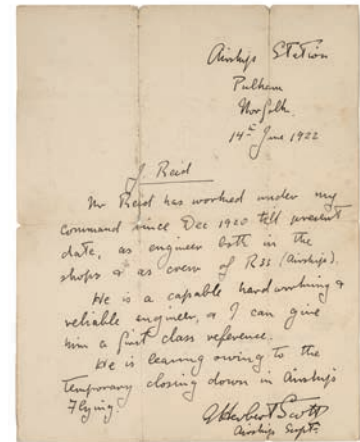 Airship Station
Pulham
Norfolk.
14th June 1922
J. Reid
Mr Reid has worked under my
command since Dec 1920 till present
date, as engineer both in the
shops & as crew of R33 (Airships).
He is a capable hardworking &
reliable engineer, & I can give
him a first class reference.
He is leaving owing to the
temporary closing down in Airships
Flying.
G Herbert Scott
Airship Supt.